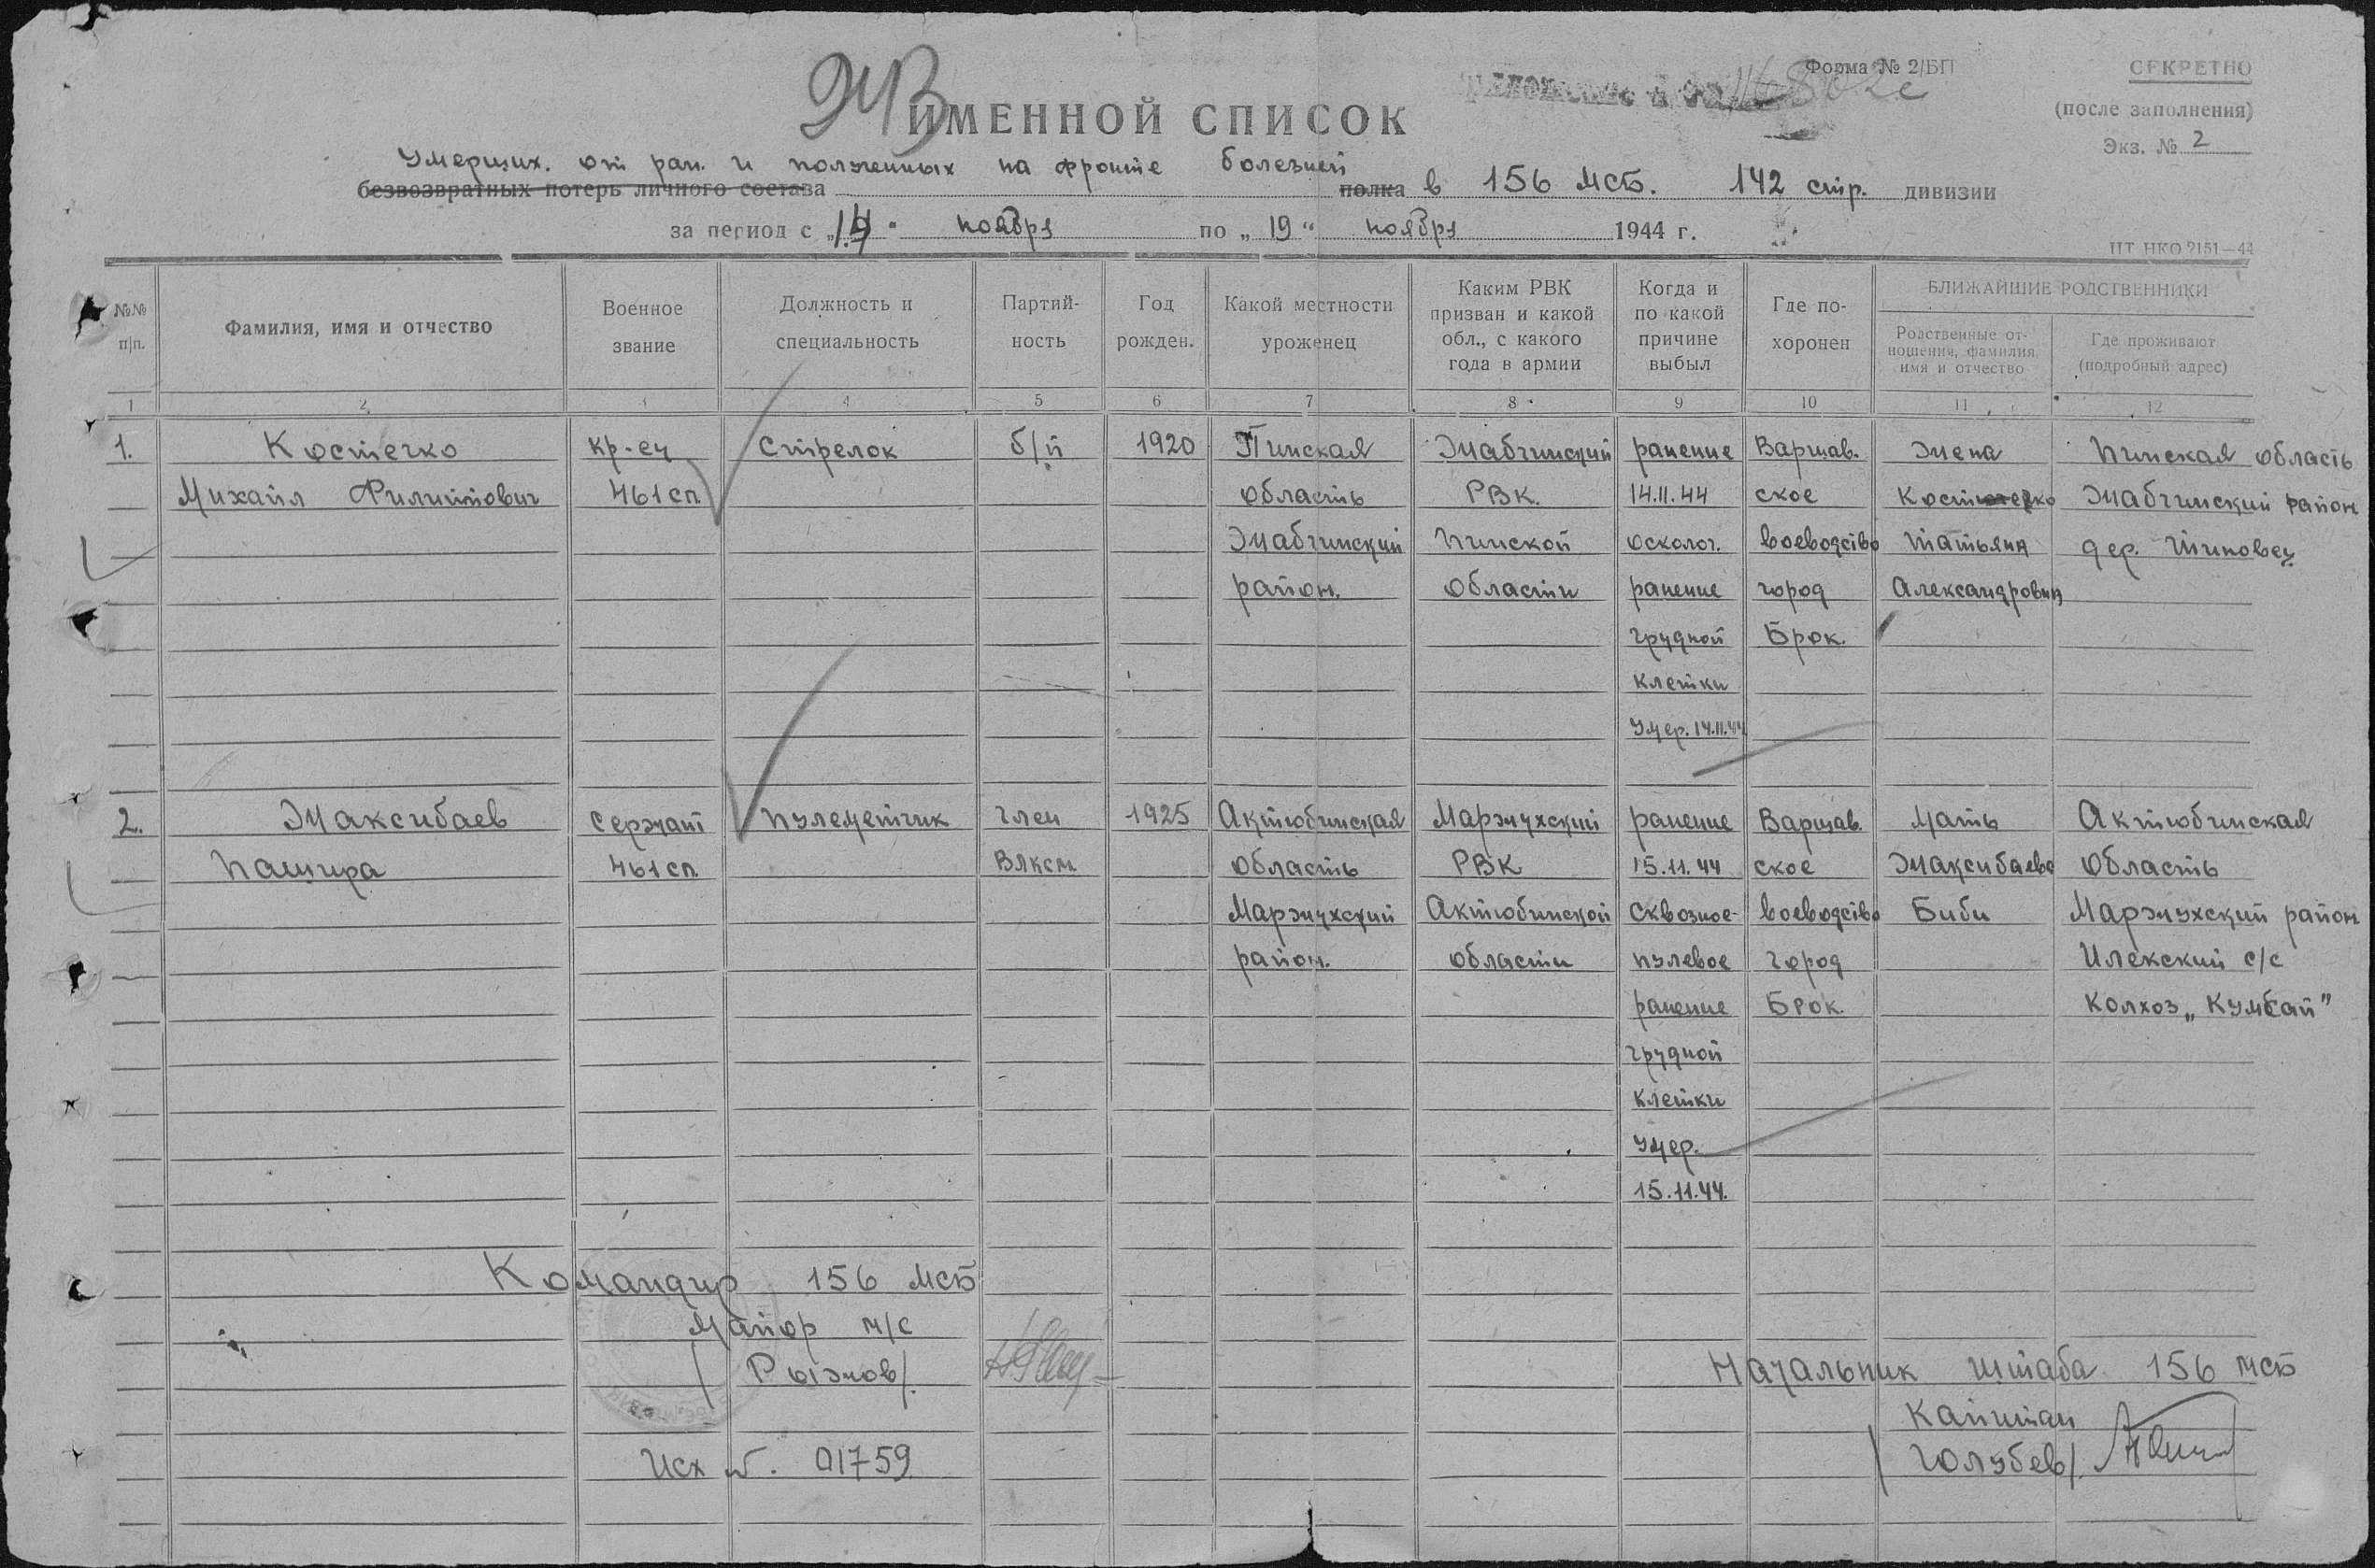 Форма № 2/БП
СЕКРЕТНО
(после заполнения)
Экз. № 2
ИМЕННОЙ СПИСОК
Умерших. от ран. и полученных на фронте болезней
безвозвратных потерь личного состава полка в 156 МСБ. 142 стр. дивизии
за период с „14" ноября по „19" ноября 1944 г.
ЦТ НКО 2151—44
№№ п|п.
Фамилия, имя и отчество
Военное звание
Должность и специальность
Партий-ность
Год рожден.
Какой местности уроженец
Каким РВК призван и какой обл., с какого года в армии
Когда и по какой причине выбыл
Где по-хоронен
БЛИЖАЙШИЕ РОДСТВЕННИКИ
Родственные от-ношения, фамилия, имя и отчество
Где проживают (подробный адрес)
1 2 3 4 5 6 7 8 9 10 11 12
1. Костечко кр-ец Стрелок б/п 1920 Пинская Жабчинский ранение Варшав. Жена Пинская область
Михаил Филиппович 461 сп. область РВК. 14.11.44 ское Костечко Жабчинский район
Жабчинский Пинской осколоч. воеводство Татьяна дер. Тиновец
район. области ранение город Александровна
грудной Брок.
клетки
Умер. 14.11.44
2. Жаксибаев Сержант пулеметчик член 1925 Актюбинская Маржухский ранение Варшав. Мать Актюбинская
Пашира 461 сп. ВЛКСМ область РВК 15.11.44 ское Жаксибаева область
Маржухский Актюбинской Сквозное- воеводство Биби Маржухский район
район. области пулевое город Илекский с/с
ранение Брок. Колхоз „Кумсай"
грудной
клетки
Умер.
15.11.44.
Командир 156 МСБ
Майор м/с
/Рыжов/.
Начальник штаба 156 МСБ
Капитан
/Голубев/.
Исх №. 01759